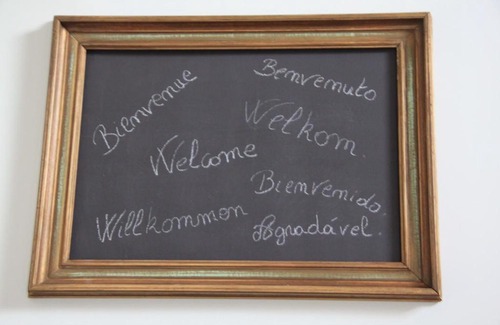 Bienvenue
Benvenuto
Welkom.
Welcome
Bienvenido.
Willkommen
Agradável.